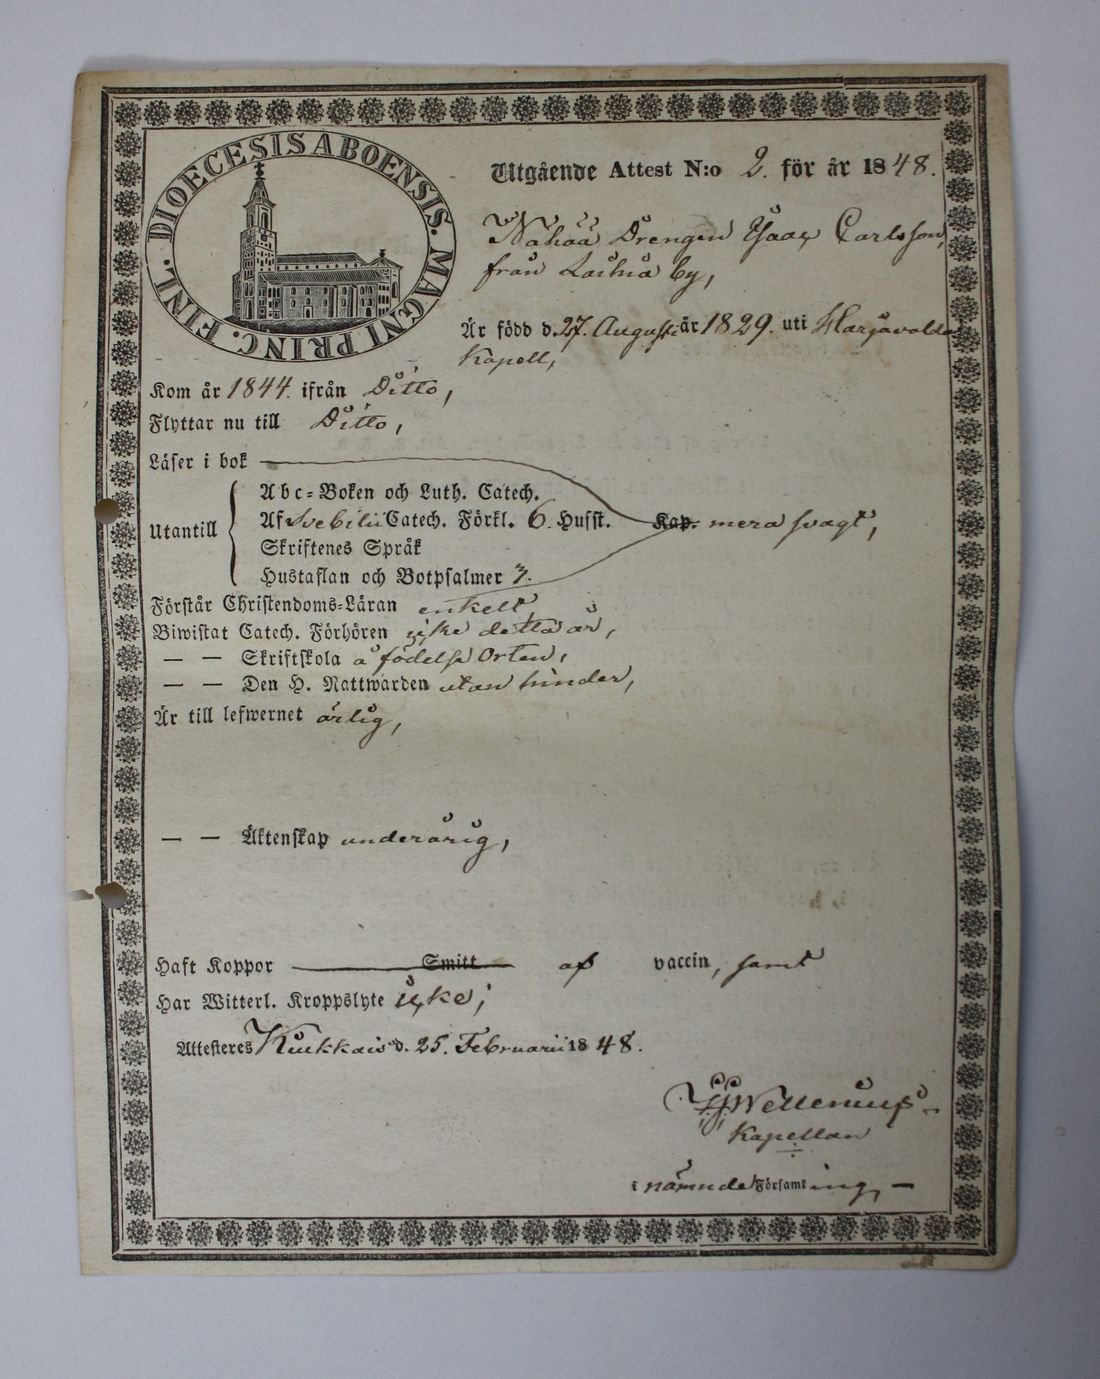 DIOECESIS ABOENSIS. MAGNI PRINC. FINL.
Utgående Attest N:o 2. för år 1848.
Drengen Isaac Carlsson,
från Laihia by,
Är född d. 27. Augusti år 1829. uti Harjavalda
Kapell,
Kom år 1844. ifrån Ditto,
Flyttar nu till Ditto,
Läser i bok
Abc-Boken och Luth. Catech.
Utantill Af Svebilii Catech. Förkl. 6. Hufst. Kap. mera svagt,
Skriftenes Språk
Hustaflan och Botpsalmer 3.
Förstår Christendoms-Läran enkelt,
Biwistat Catech. Förhören icke detta år,
— — Skriftskola å födelse Orten,
— — Den H. Nattwarden utan hinder,
Är till lefwernet ärlig,
— — Äktenskap underårig,
Haft Koppor Smitt af vaccin, samt
Har Witterl. Kroppslyte icke;
Attesteras d. 25. Februarii 1848.
Kapellan
i nämnde Församling, —